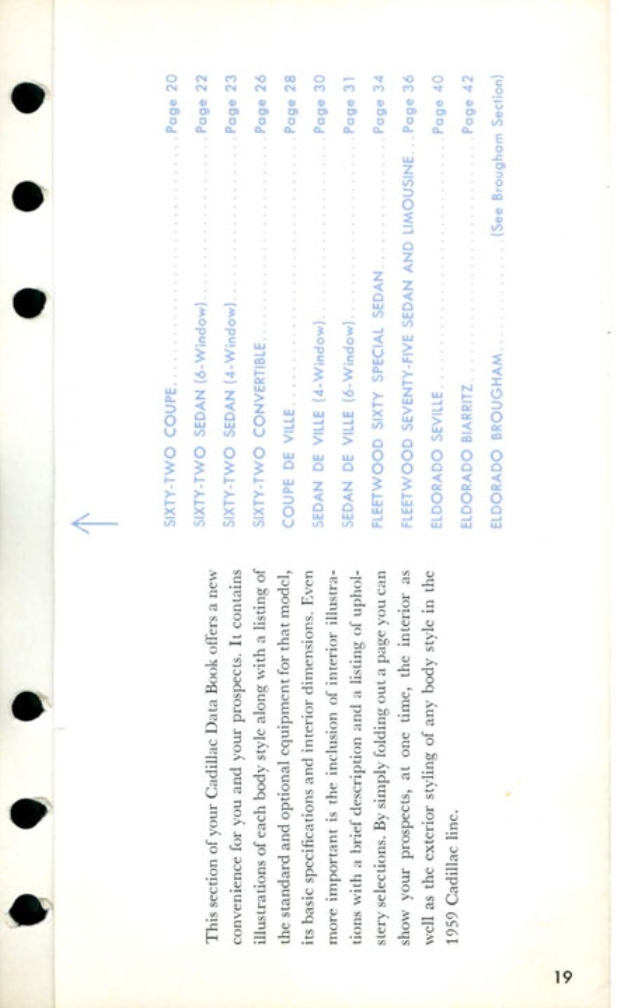 This section of your Cadillac Data Book offers a new
convenience for you and your prospects. It contains
illustrations of each body style along with a listing of
the standard and optional equipment for that model,
its basic specifications and interior dimensions. Even
more important is the inclusion of interior illustra-
tions with a brief description and a listing of uphol-
stery selections. By simply folding out a page you can
show your prospects, at one time, the interior as
well as the exterior styling of any body style in the
1959 Cadillac line.
SIXTY-TWO COUPE Page 20
SIXTY-TWO SEDAN (6-Window) Page 22
SIXTY-TWO SEDAN (4-Window) Page 23
SIXTY-TWO CONVERTIBLE Page 26
COUPE DE VILLE Page 28
SEDAN DE VILLE (4-Window) Page 30
SEDAN DE VILLE (6-Window) Page 31
FLEETWOOD SIXTY SPECIAL SEDAN Page 34
FLEETWOOD SEVENTY-FIVE SEDAN AND LIMOUSINE Page 36
ELDORADO SEVILLE Page 40
ELDORADO BIARRITZ Page 42
ELDORADO BROUGHAM (See Brougham Section)
19